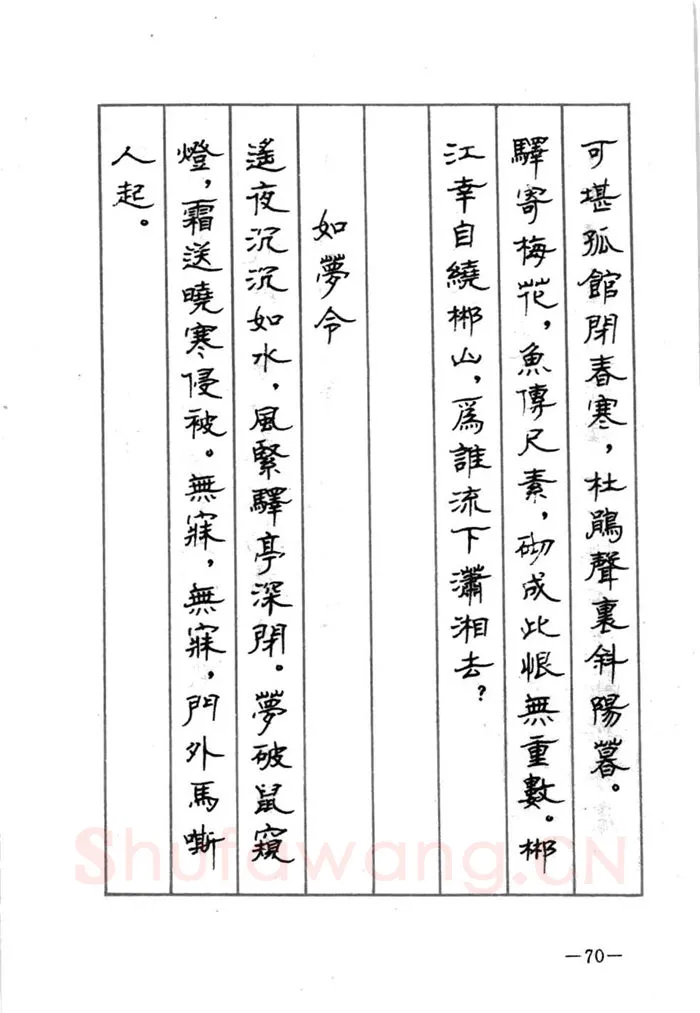 可堪孤館閉春寒，杜鵑聲裏斜陽暮。
驛寄梅花，魚傳尺素，砌成此恨無重數。郴
江幸自繞郴山，爲誰流下瀟湘去？
如夢令
遙夜沉沉如水，風緊驛亭深閉。夢破鼠窺
燈，霜送曉寒侵被。無寐，無寐，門外馬嘶
人起。
—70—
Shufawang.CN